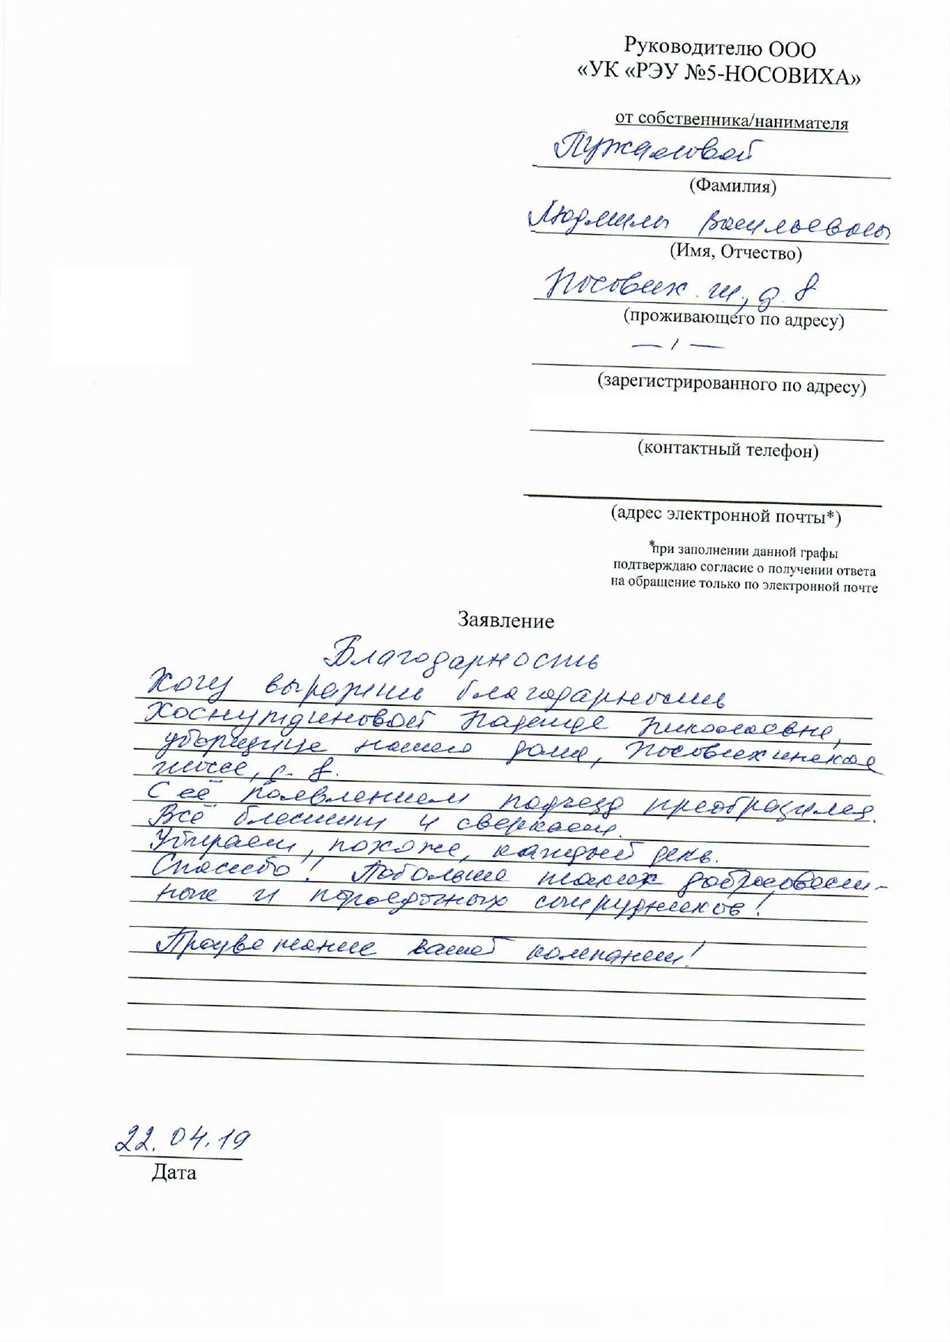 Руководителю ООО
«УК «РЭУ №5-НОСОВИХА»
от собственника/нанимателя
Пужаловой
(Фамилия)
Людмилы Васильевны
(Имя, Отчество)
Носових. ш., д. 8
(проживающего по адресу)
— / —
(зарегистрированного по адресу)
(контактный телефон)
(адрес электронной почты*)
*при заполнении данной графы
подтверждаю согласие о получении ответа
на обращение только по электронной почте
Заявление
Благодарность
Хочу выразить благодарность
Хоснутдиновой Надежде Николаевне,
уборщице нашего дома, Носовихинское
шоссе, д. 8.
С её появлением подъезд преобразился.
Всё блестит и сверкает.
Убирает, похоже, каждый день.
Спасибо! Побольше таких добросовест-
ных и порядочных сотрудников!
Процветание вашей компании!
22.04.19
Дата